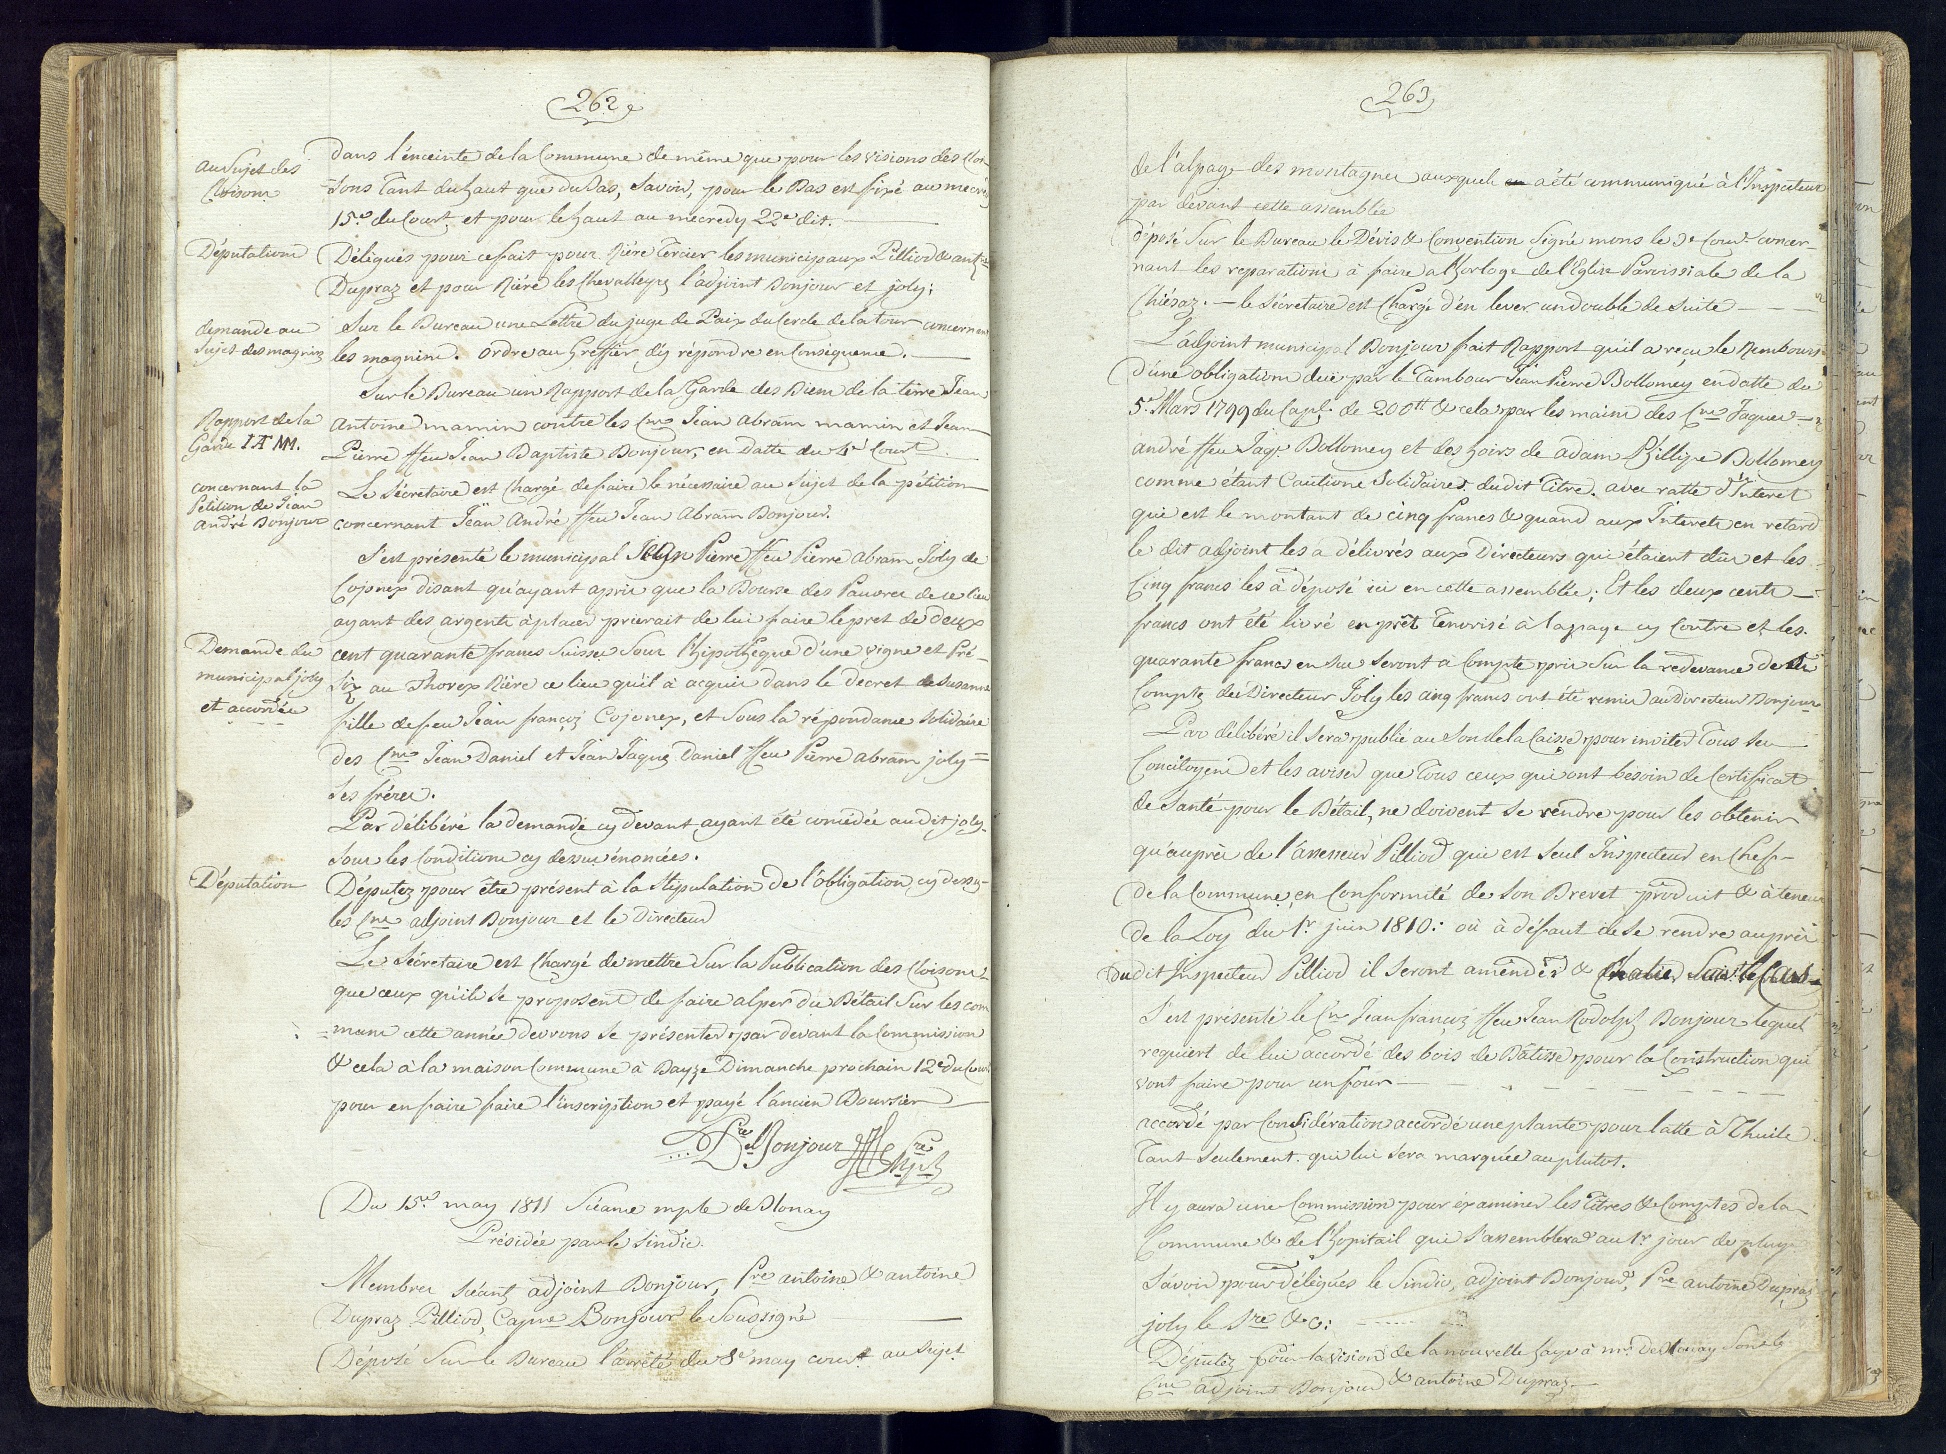 262
au Sujet des
Cloisons
dans l'énceinte de la Commune de même que pour les visions des Cloi-
-sons tant du haut que du Bas, Savoir, pour le Bas est fixé au mecredy
15e. du Court, et pour le haut au mecredy 22e dit.
Députation
Délégués pour ce fait pour Rière Tercier les municipaux Pilliod & antne
Dupraz et pour Rière les Chevalleyrs l'adjoint Bonjour et joly;
demande au
Sujet des magnins
Sur le Bureau une Lettre du juge de Paix du Cercle de la tour concernant
les magnins. ordre au Greffier d'y répondre en Conséquence.
Sur le Bureau un Rapport de la Garde des Biens de la terre Jean
Rapport de la
Garde I A M.
Antoine mamin contre les Cns Jean Abram mamin et Jean
Pierre ffeu Jean Baptiste Bonjour, en datte du 4e Court
concernant la
Pétition de Jean
André Bonjour
Le Sécretaire est Chargé de faire le nécessaire au Sujet de la pétition
concernant Jean André ffeu Jean Abram Bonjour.
S'est présenté le municipal Jean Pierre ffeu Pierre Abram Joly de
Cojonex disant qu'ayant apris que la Bourse des Pauvres de ce lieu
ayant des argents à placer prierait de lui faire le pret de deux
Demande du
municipal joly
et accordée
cent quarante francs Suisses Sous l'hipothèque d'une vigne et Pré-
Siz au Thorex Rière ce lieu qu'il à acquis dans le decret de Susanne
fille de feu Jean françoz Cojonex, et Sous la répondance Solidaire
des Cns Jean Daniel et Jean Jaques Daniel ffeu Pierre Abram joly =
Ses frères.
Par délibéré la demande cy devant ayant été concédée au dit joly
Sous les Conditions cy dessus énoncées.
Députation
Députez pour être présent à la Stipulation de l'obligation, cy dessu-
les Cns adjoint Bonjour et le Directeur
Le Sécretaire est Chargé de mettre Sur la Publication des Cloisons
que ceux qu'ils se proposent de faire alper du Bétail Sur les com
= muns cette année devrons se présenter par devant la Commission
& cela à la maison Commune à Bayse Dimanche prochain 12e du Court
pour en faire faire l'inscription et payé l'ancien Boursier
Bonjour
Du 15e. may 1811 Séance mple de Blonay
Présidée par le Sindic.
Membres Séants adjoint Bonjour, Pre antoine & antoine
Dupraz Pilliod, Capne Bonjour le Soussigné
Déposé Sur le Bureau l'arrêté du 8e may court au Sujet
263
de l'alpage des montagnes auxquels a été communiqué à l'Inspecteur
par devant cette assemblée
déposé Sur le Bureau le Dévis & Convention Signé mons le 3e Cour. concer-
nant les reparations à faire a l'horloge de l'Eglise Paroissiale de la
Chiésaz. — le Sécretaire est Chargé d'en lever un double de Suite — — —
L'adjoint municipal Bonjour fait Rapport qu'il a reçu le Rembours
d'une obligation düe par le Tambour Jean Pierre Bollomey en datte du
5e. Mars 1799 du Capl. de 200 tt & cela par les mains des Cns Jaques
andré ffeu Jaqs. Bollomey et des hoirs de adam Phillipe Bollomey
comme étant Cautions Solidaires dudit titre. avec ratte d'Interet
qui est le montant de cinq francs & quand aux Interets en retard
le dit adjoint les a délivrés aux Directeurs qui étaient dûs et les
Cinq francs les à déposé ici en cette assemblée; Et les deux cents —
francs ont été livré en prêt Tenorisé à la page cy Contre et les
quarante francs en sus Seront à Compte pris Sur la redevance de
Compte du Directeur Joly les cinq francs ont été remis au directeur Bonjour
Par délibéré il Sera publié au Son de la Caisse pour inviter Tous Ses
Concitoyens et les aviser que tous ceux qui ont besoin de Certificat
de Santé pour le Bétail, ne doivent se rendre pour les obtenir
qu'auprès de l'assesseur Pilliod qui est Seul Inspecteur en Chef —
de la Commune, en Conformité de Son Brevet produit & à teneur
de la Loy du 1r. juin 1810: où à défaut de se rendre auprès
dudit Inspecteur Pilliod il Seront aménder & Chatier Suivt. le Cas.
S'est présenté le Cn Jean françoz ffeu Jean Rodolph Bonjour lequel
requiert de lui accordé des bois de Bâtisse pour la Construction qui
vont faire pour un four — — — — — —
accordé par Considération accordé une plante pour latte à Thuile
Tant Seulement. qui lui Sera marquée au plutot.
Il y aura une Commission pour éxaminer les Titres & Comptes de la
Commune & de l'hopitail qui S'assemblera au 1r. jour de pluye
Savoir pour délégués le Sindic, adjoint Bonjour, Pre antoine Dupraz
joly le Sre & C:
Députez pour la vision de la nouvelle haye à mr. de Blonay Sont le
Cns adjoint Bonjour & antoine Dupraz.